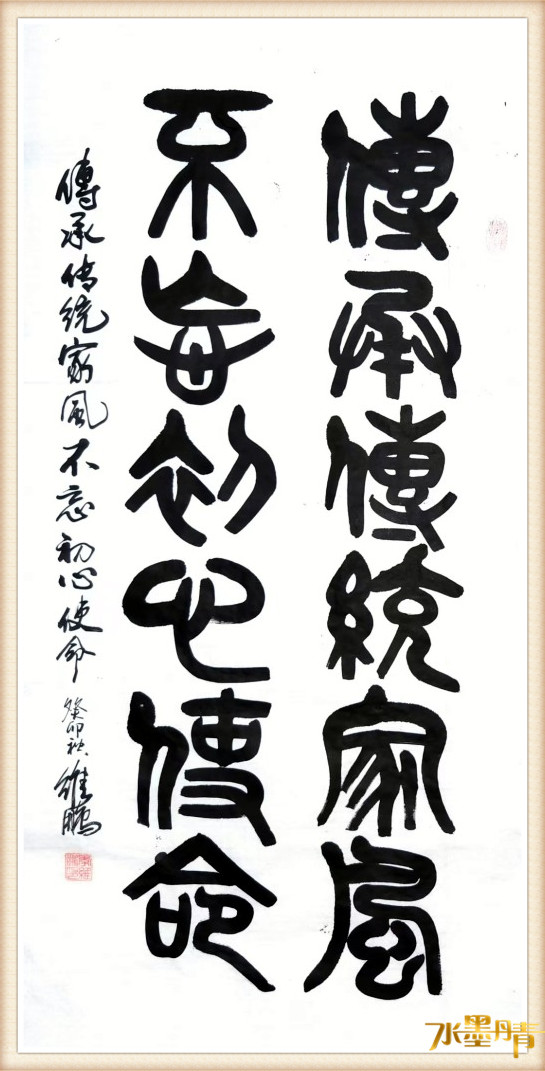 傳承傳統家風
不忘初心使命
傳承传统家風不忘初心使命 癸卯秋 鵬
水墨丹青